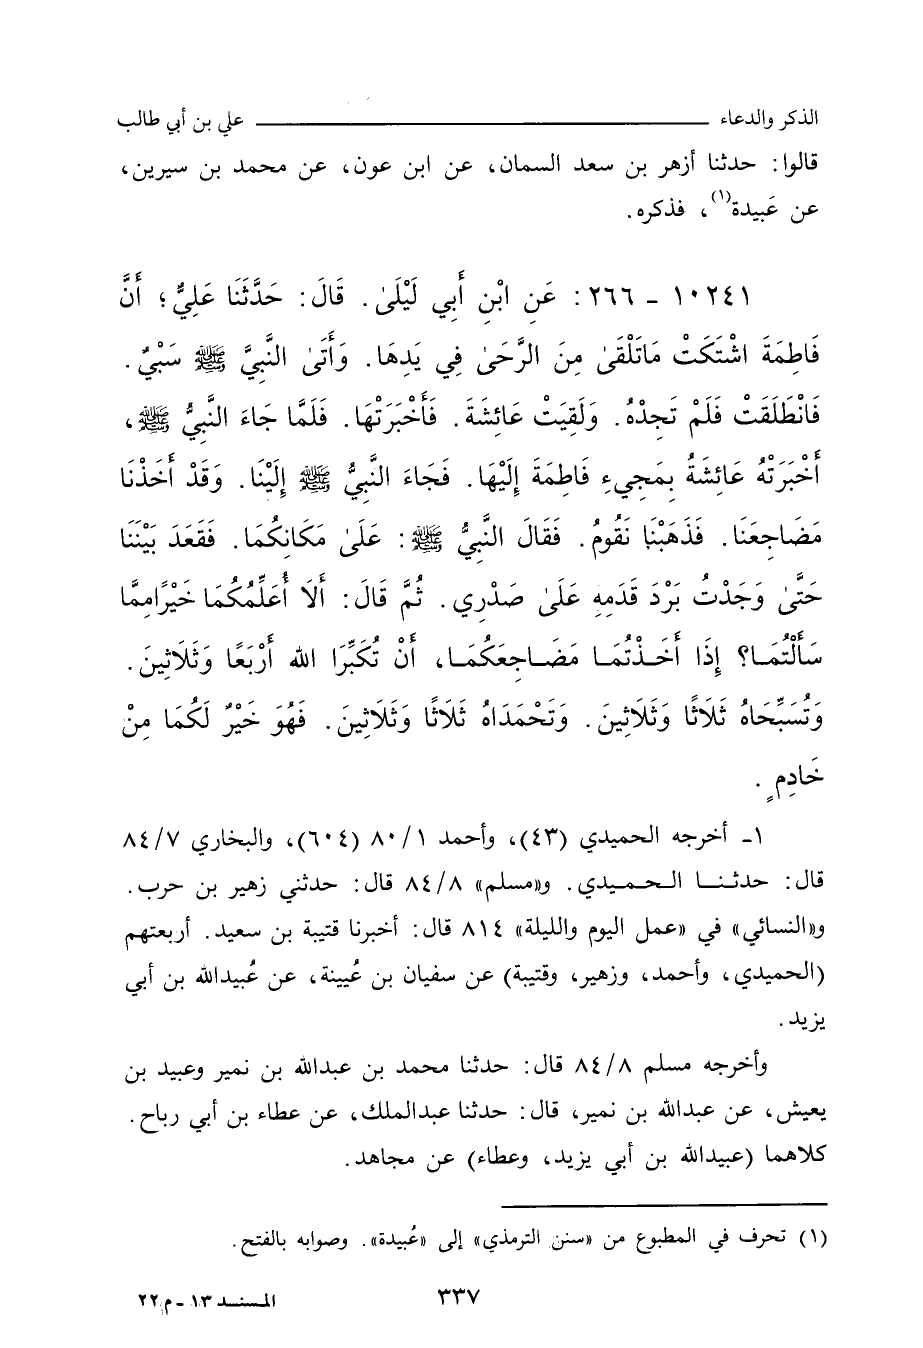 الذكر والدعاء ــــــــــ علي بن أبي طالب
قالوا: حدثنا أزهر بن سعد السمان، عن ابن عون، عن محمد بن سيرين،
عن عَبيدة(١)، فذكره.
١٠٢٤١ - ٢٦٦: عَنِ ابْنِ أَبِي لَيْلَىٰ. قَالَ: حَدَّثَنَا عَلِيٌّ؛ أَنَّ
فَاطِمَةَ اشْتَكَتْ مَاتَلْقَىٰ مِنَ الرَّحَىٰ فِي يَدِهَا. وَأَتَىٰ النَّبِيَّ ﷺ سَبْيٌ.
فَانْطَلَقَتْ فَلَمْ تَجِدْهُ. وَلَقِيَتْ عَائِشَةَ. فَأَخْبَرَتْهَا. فَلَمَّا جَاءَ النَّبِيُّ ﷺ،
أَخْبَرَتْهُ عَائِشَةُ بِمَجِيءِ فَاطِمَةَ إِلَيْهَا. فَجَاءَ النَّبِيُّ ﷺ إِلَيْنَا. وَقَدْ أَخَذْنَا
مَضَاجِعَنَا. فَذَهَبْنَا نَقُومُ. فَقَالَ النَّبِيُّ ﷺ: عَلَىٰ مَكَانِكُمَا. فَقَعَدَ بَيْنَنَا
حَتَّىٰ وَجَدْتُ بَرْدَ قَدَمِهِ عَلَىٰ صَدْرِي. ثُمَّ قَالَ: أَلَا أُعَلِّمُكُمَا خَيْرًامِمَّا
سَأَلْتُمَـا؟ إِذَا أَخَـذْتُمَـا مَضَـاجِعَكُمَـا، أَنْ تُكَبِّرَا الله أَرْبَعًا وَثَلَاثِينَ.
وَتُسَبِّحَاهُ ثَلَاثًا وَثَلَاثِينَ. وَتَحْمَدَاهُ ثَلَاثًا وَثَلَاثِينَ. فَهُوَ خَيْرٌ لَكُمَا مِنْ
خَادِمٍ.
١- أخرجه الحميدي (٤٣)، وأحمد ٨٠/١ (٦٠٤)، والبخاري ٨٤/٧
قال: حدثنـا الـحـميـدي. و«مسلم» ٨٤/٨ قال: حدثني زهير بن حرب.
و«النسائي» في «عمل اليوم والليلة» ٨١٤ قال: أخبرنا قتيبة بن سعيد. أربعتهم
(الحميدي، وأحمد، وزهير، وقتيبة) عن سفيان بن عُيينة، عن عُبيدالله بن أبي
يزيد.
وأخرجه مسلم ٨٤/٨ قال: حدثنا محمد بن عبدالله بن نمير وعبيد بن
يعيش، عن عبدالله بن نمير، قال: حدثنا عبدالملك، عن عطاء بن أبي رباح.
كلاهما (عبيدالله بن أبي يزيد، وعطاء) عن مجاهد.
(١) تحرف في المطبوع من «سنن الترمذي» إلى «عُبيدة». وصوابه بالفتح.
٣٣٧
المسند ١٣ - م٢٢